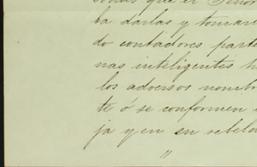 sonas que el Señor
ba darlas y tomarl
do contadores parti
nas inteligentes h
los adversos nombr
te ó se conformen
ja y en su rebel
"